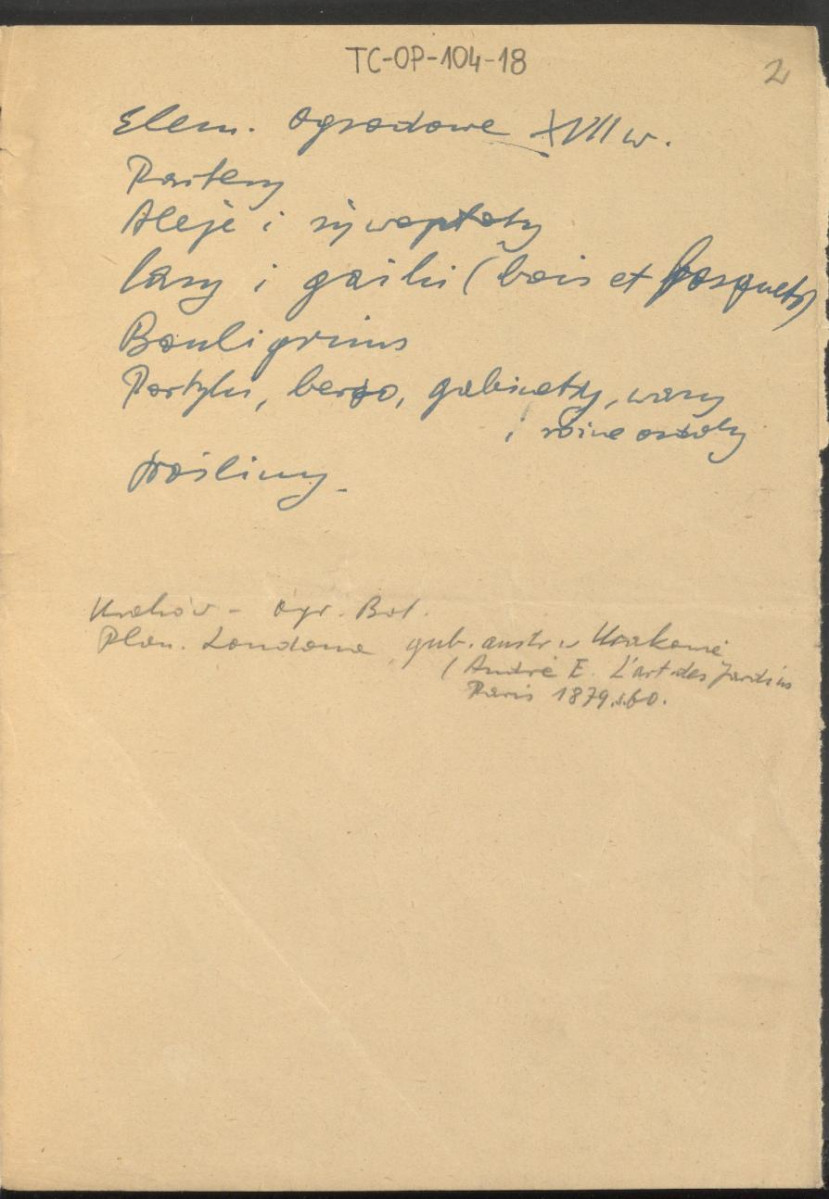 TC-OP-104-18
2
Elem. Ogrodowe XVII w.
Partery
Aleje i żywopłoty
lasy i gaiki (bois et bosquets)
Boulingrins
Portyki, berso, gabinety, wazy
i różne ozdoby
rośliny.
Kraków - Ogr. Bot.
Plan. Londona gub. austr. w Krakowie
(André E. L'art des Jardins
Paris 1879, s. 60.